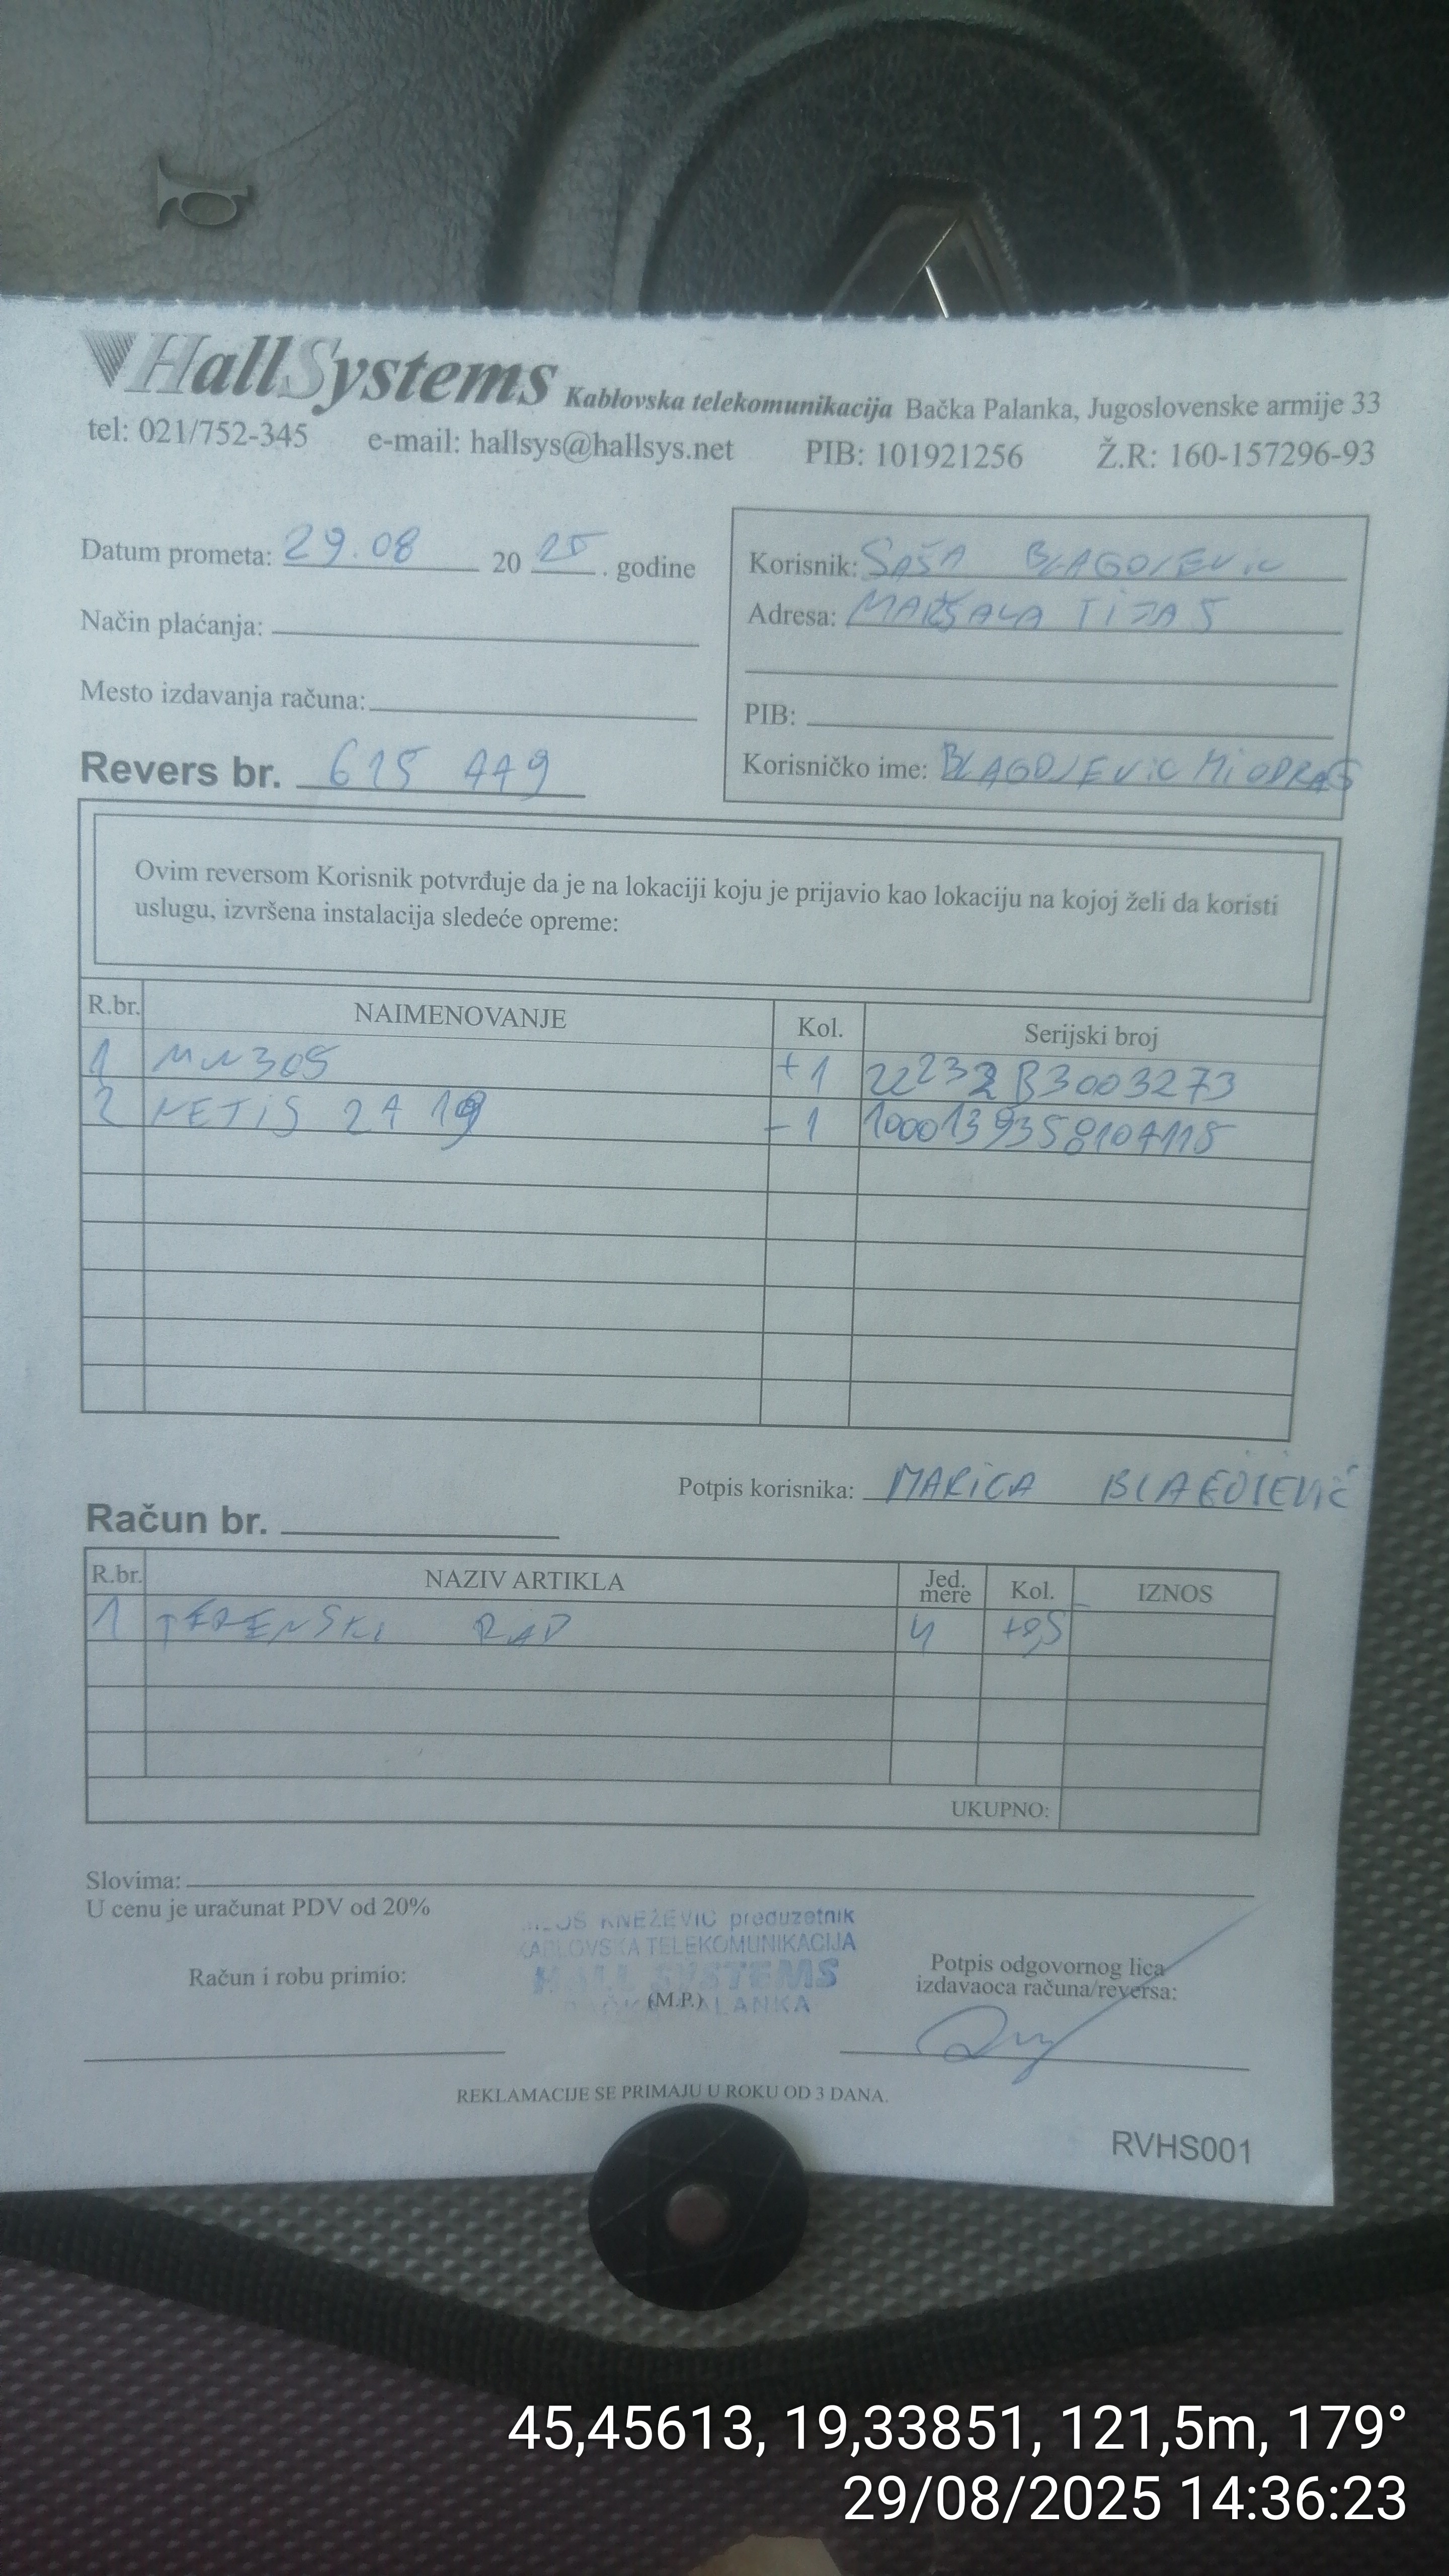 HallSystems Kablovska telekomunikacija Bačka Palanka, Jugoslovenske armije 33
tel: 021/752-345 e-mail: hallsys@hallsys.net PIB: 101921256 Ž.R: 160-157296-93
Datum prometa: 29.08 2025. godine
Način plaćanja:
Mesto izdavanja računa:
Revers br. 615 449
Korisnik: SAŠA BLAGOJEVIC
Adresa: MARŠALA TITA 5
PIB:
Korisničko ime: BLAGOJEVIC MIODRAG
Ovim reversom Korisnik potvrđuje da je na lokaciji koju je prijavio kao lokaciju na kojoj želi da koristi
uslugu, izvršena instalacija sledeće opreme:
R.br. NAIMENOVANJE Kol. Serijski broj
1 MW305 +1 22232B3003273
2 NETIS 2419 -1 1000139358107115
Potpis korisnika: MARICA BLAGOJEVIĆ
Račun br.
R.br. NAZIV ARTIKLA Jed. mere Kol. IZNOS
1 TERENSKI RAD +0,5
UKUPNO:
Slovima:
U cenu je uračunat PDV od 20%
KNEŽEVIĆ preduzetnik
KABLOVSKA TELEKOMUNIKACIJA
HALL SYSTEMS
BAČKA PALANKA
Račun i robu primio:
(M.P.)
Potpis odgovornog lica
izdavaoca računa/reversa:
REKLAMACIJE SE PRIMAJU U ROKU OD 3 DANA.
RVHS001
45,45613, 19,33851, 121,5m, 179°
29/08/2025 14:36:23